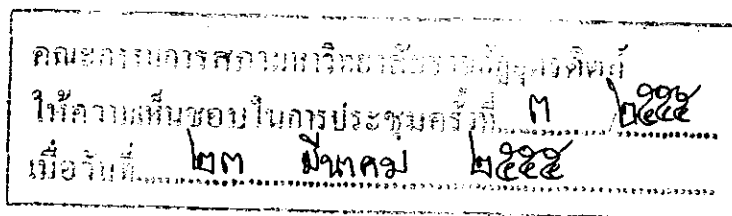 คณะกรรมการสภามหาวิทยาลัยราชภัฏอุตรดิตถ์
ให้ความเห็นชอบในการประชุมครั้งที่ ๓ /๒๕๕๕
เมื่อวันที่ ๒๓ มีนาคม ๒๕๕๕